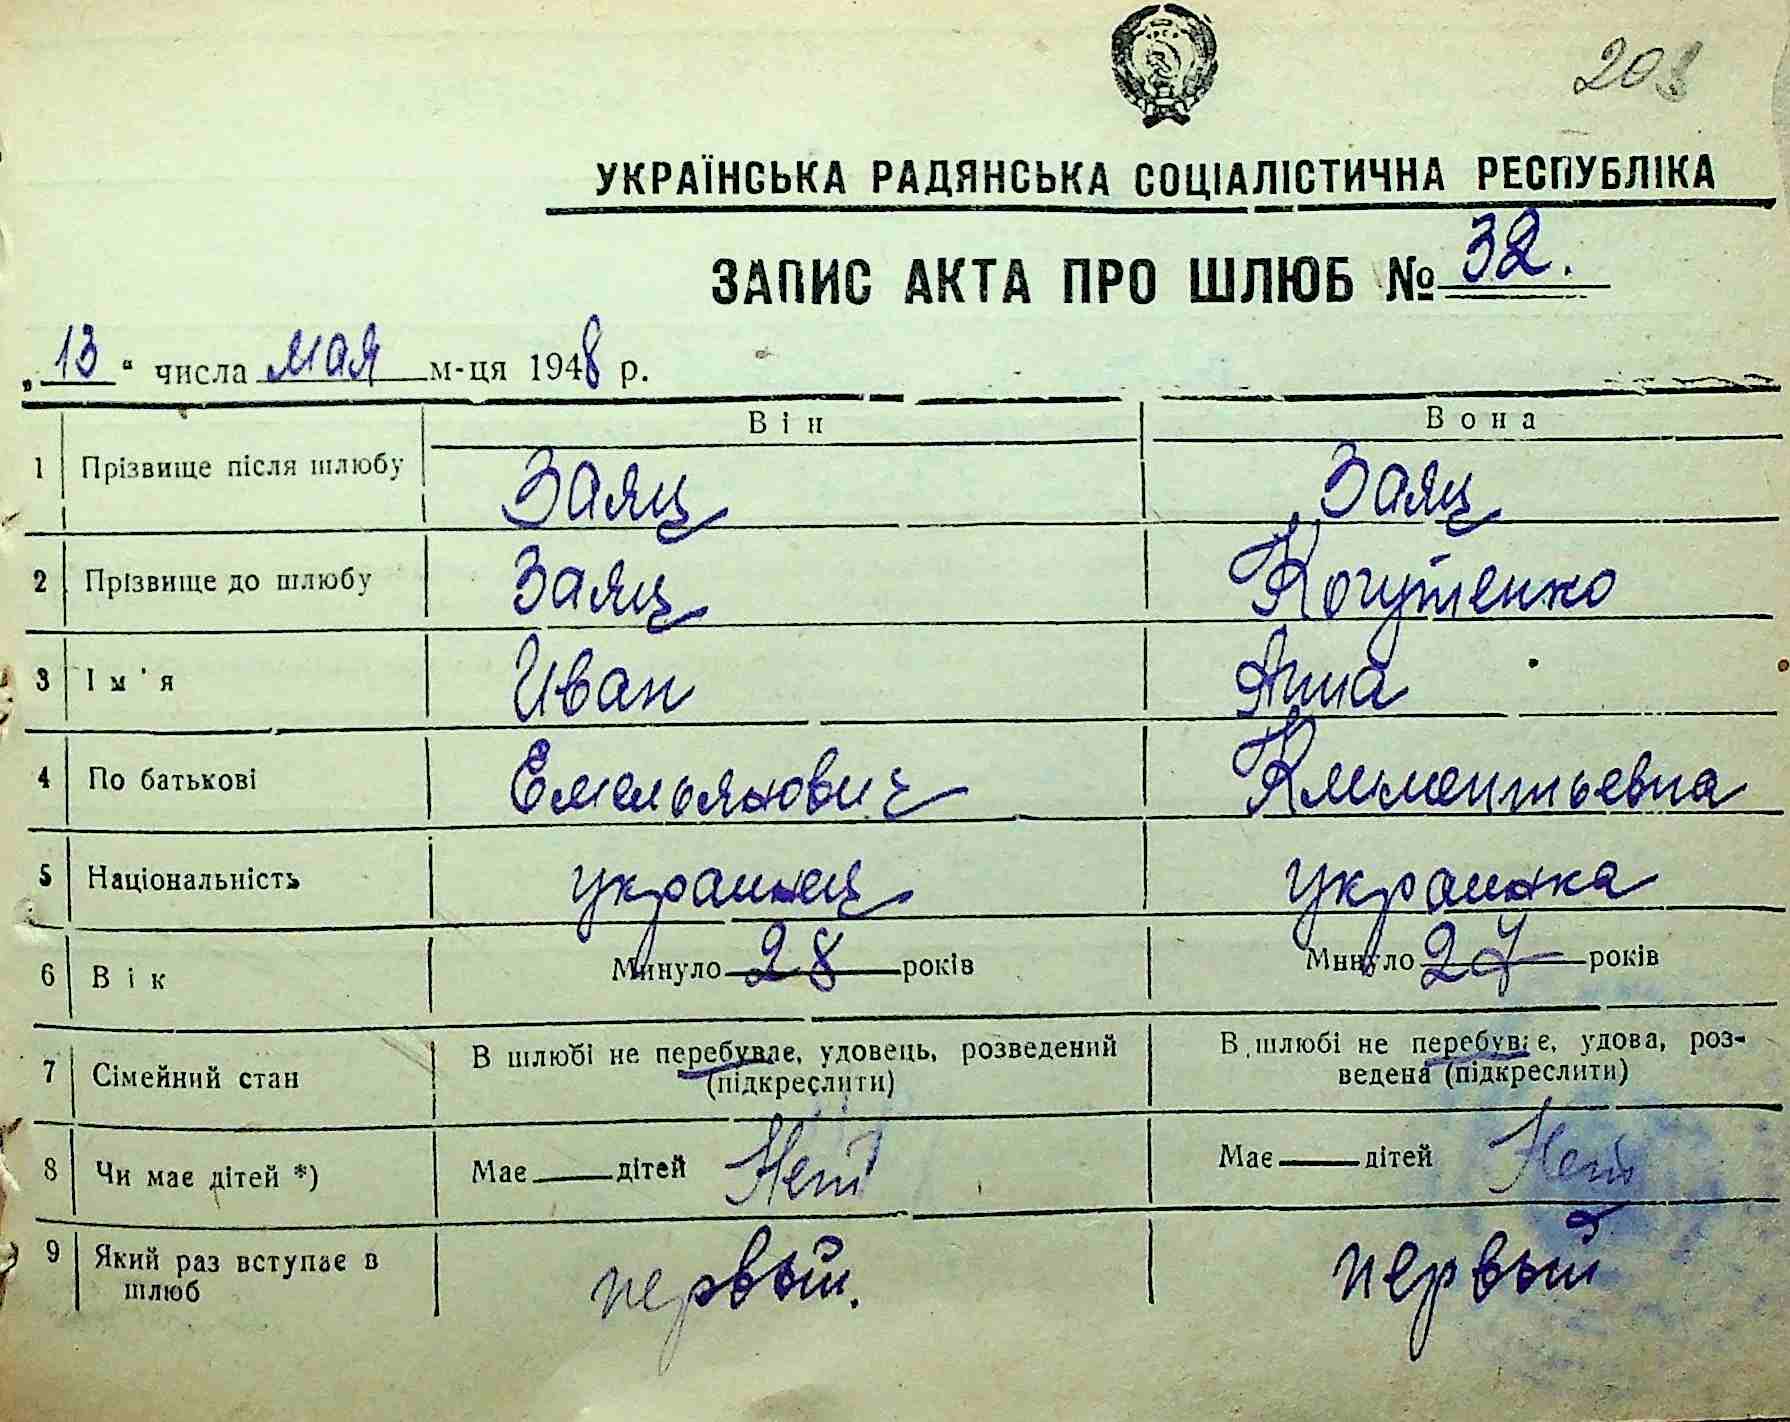 208
УКРАЇНСЬКА РАДЯНСЬКА СОЦІАЛІСТИЧНА РЕСПУБЛІКА
ЗАПИС АКТА ПРО ШЛЮБ № 32.
„13“ числа мая м-ця 1948 р.
Він Вона
1 Прізвище після шлюбу Заяц Заяц
2 Прізвище до шлюбу Заяц Когутенко
3 Ім'я Иван Анна
4 По батькові Емельянович Климентьевна
5 Національність украинец украинка
6 Вік Минуло 28 років Минуло 27 років
7 Сімейний стан В шлюбі не перебуває, удовець, розведений (підкреслити) В шлюбі не перебуває, удова, роз-
ведена (підкреслити)
8 Чи має дітей *) Має дітей Нет Має дітей Нет
9 Який раз вступає в
шлюб первый. первый